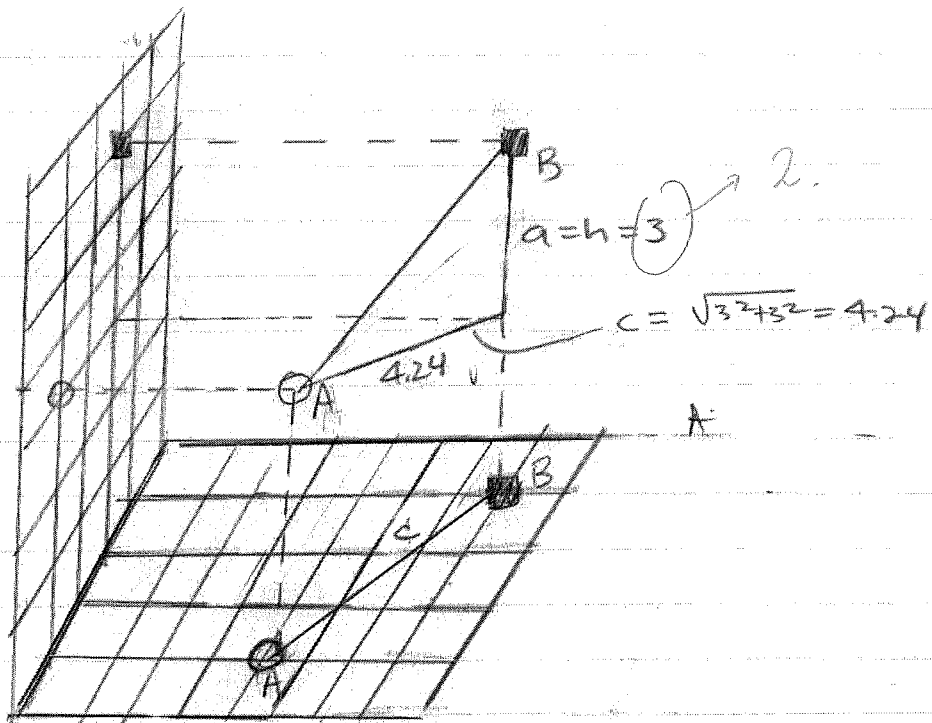 B
2.
a=h=3
c = √3²+3² = 4.24
4.24
A
A
B
c
A